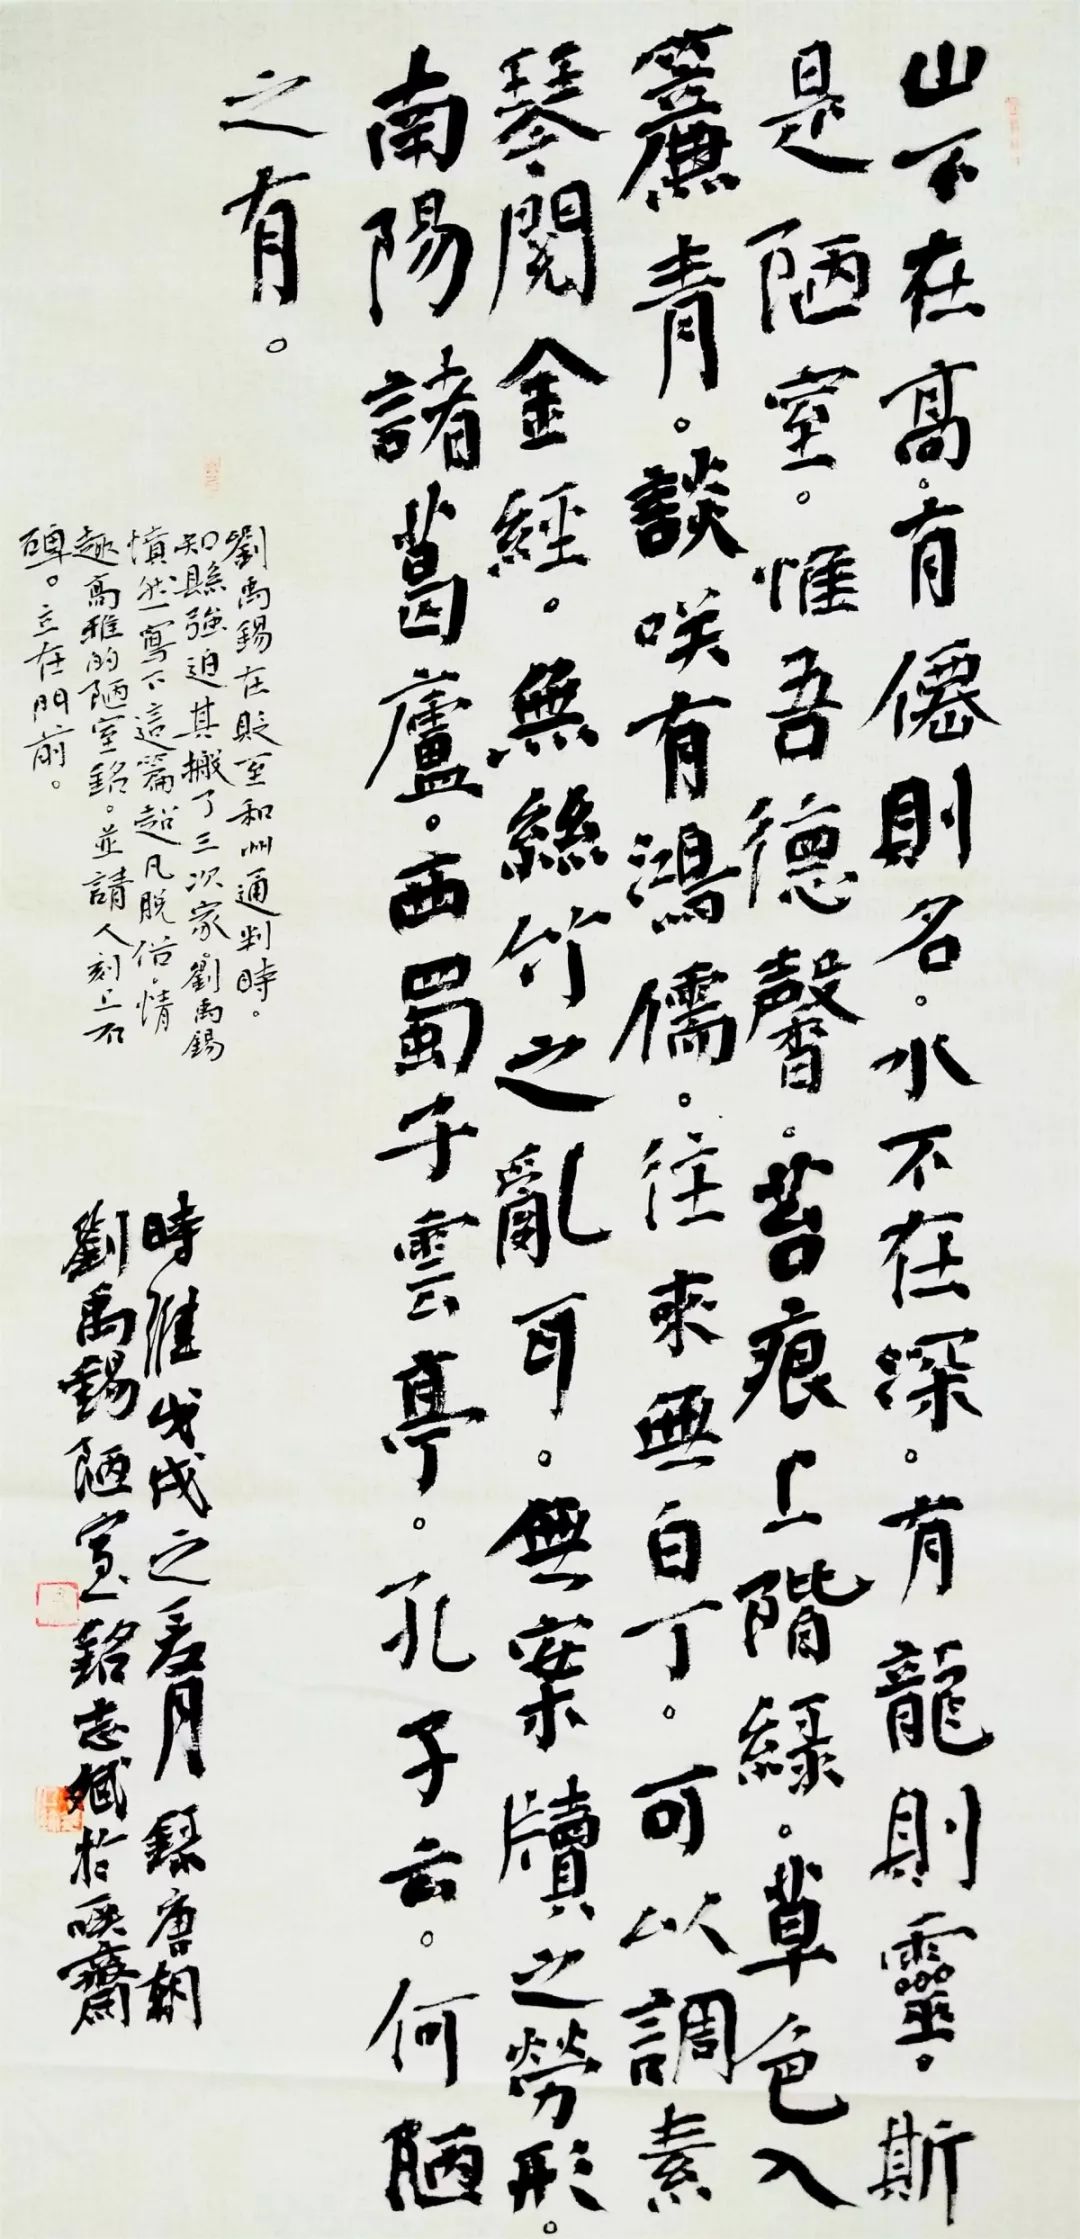 山不在高。有僊則名。水不在深。有龍則靈。斯
是陋室。惟吾德馨。苔痕上階緑。草色入
簾青。談咲有鴻儒。往來無白丁。可以調素
琴閱金經。無絲竹之亂耳。無案牘之勞形。
南陽諸葛廬。西蜀子雲亭。孔子云。何陋
之有。
劉禹錫在貶至和州通判時。
知縣強迫其搬了三次家劉禹錫
憤然寫下這篇超凡脫俗。情
趣高雅的陋室銘。並請人刻上石
碑。立在門前。
時維戊戌之夏月錄唐朝
劉禹錫陋室銘志斌於咲齋